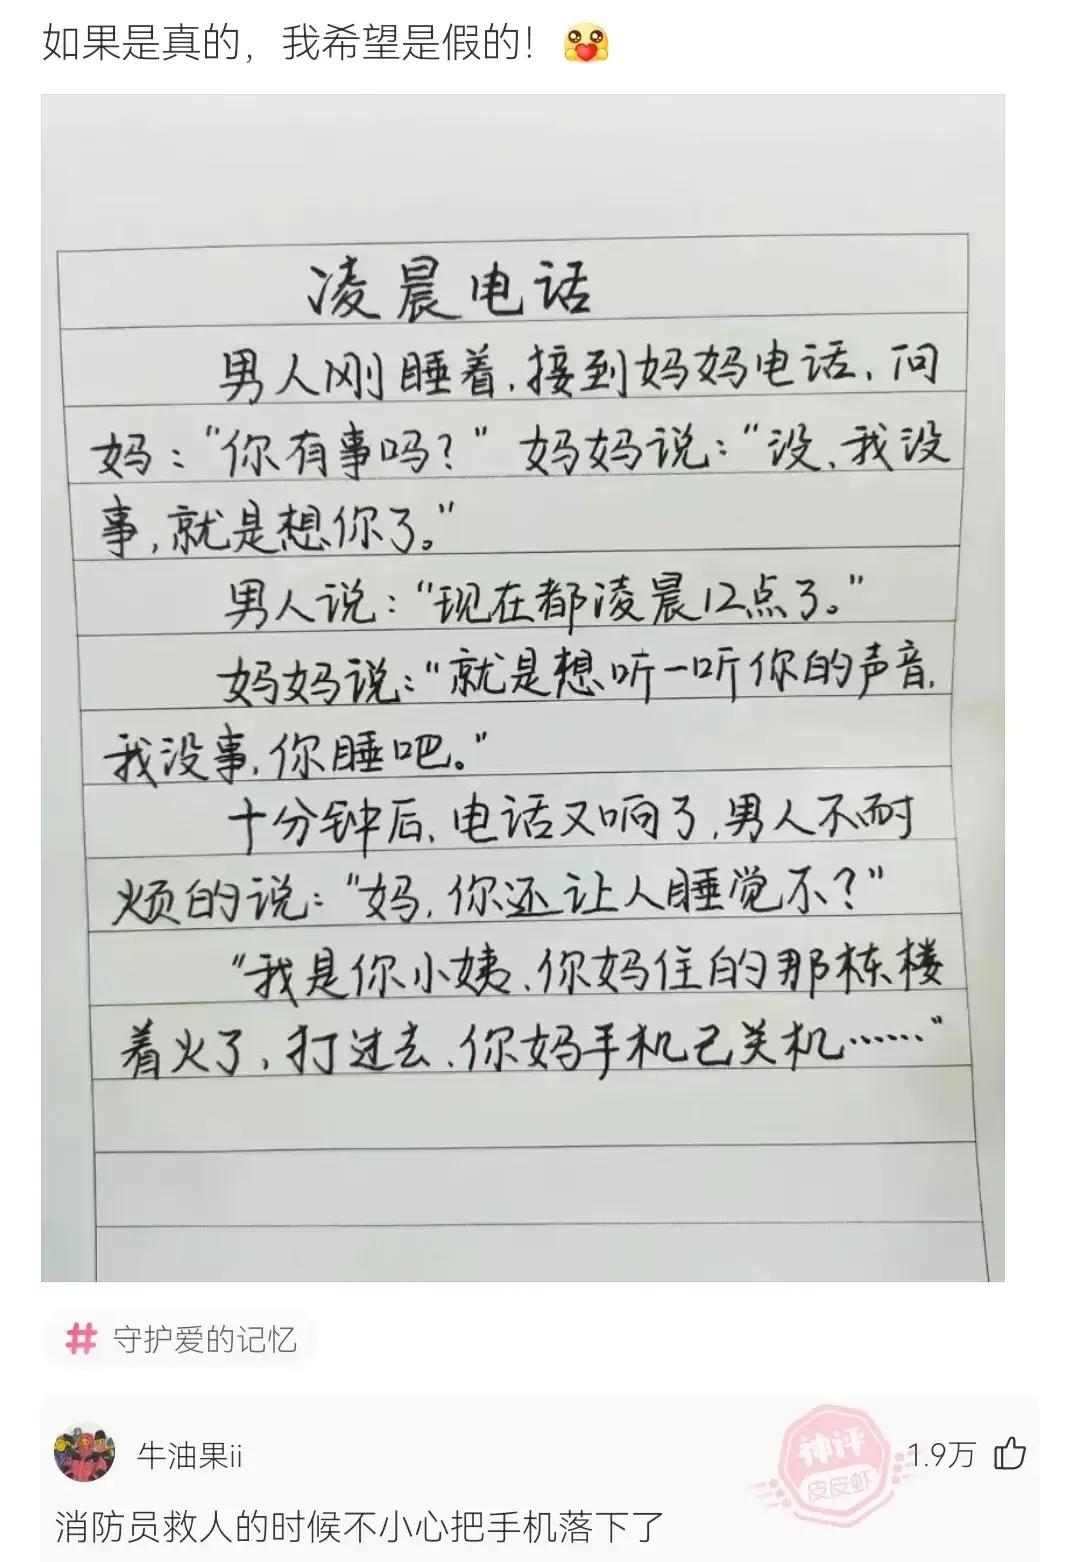 如果是真的，我希望是假的！
凌晨电话
男人刚睡着，接到妈妈电话，问
妈："你有事吗？" 妈妈说："没，我没
事，就是想你了。"
男人说："现在都凌晨12点了。"
妈妈说："就是想听一听你的声音，
我没事，你睡吧。"
十分钟后，电话又响了，男人不耐
烦的说："妈，你还让人睡觉不？"
"我是你小姨，你妈住的那栋楼
着火了，打过去，你妈手机已关机……"
# 守护爱的记忆
牛油果ii
神评
皮皮虾
1.9万
消防员救人的时候不小心把手机落下了